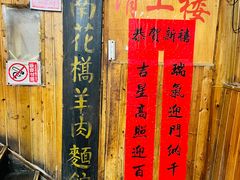 清上樓
恭賀新禧
瑞氣迎門納千
吉星高照迎百
南花橋羊肉麵館